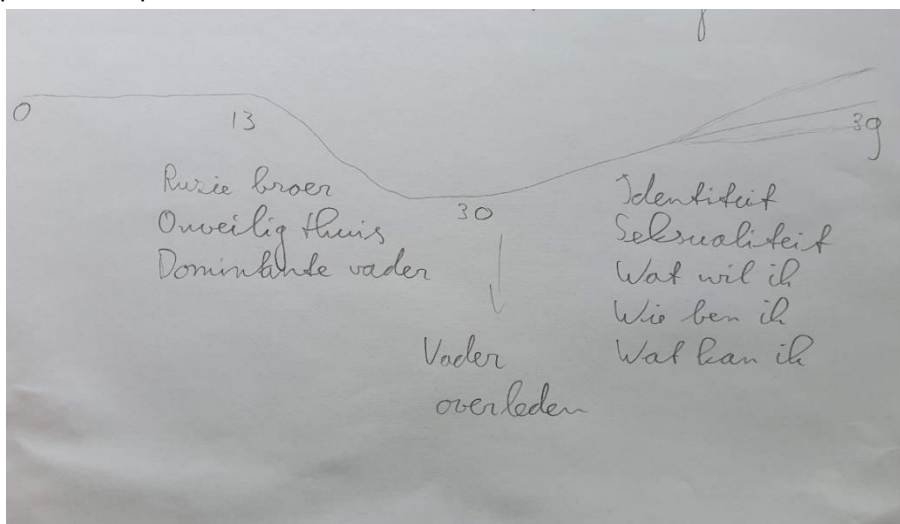 0
13
30
39
Ruzie broer
Onveilig thuis
Domintante vader
Vader
overleden
Identiteit
Seksualiteit
Wat wil ik
Wie ben ik
Wat kan ik